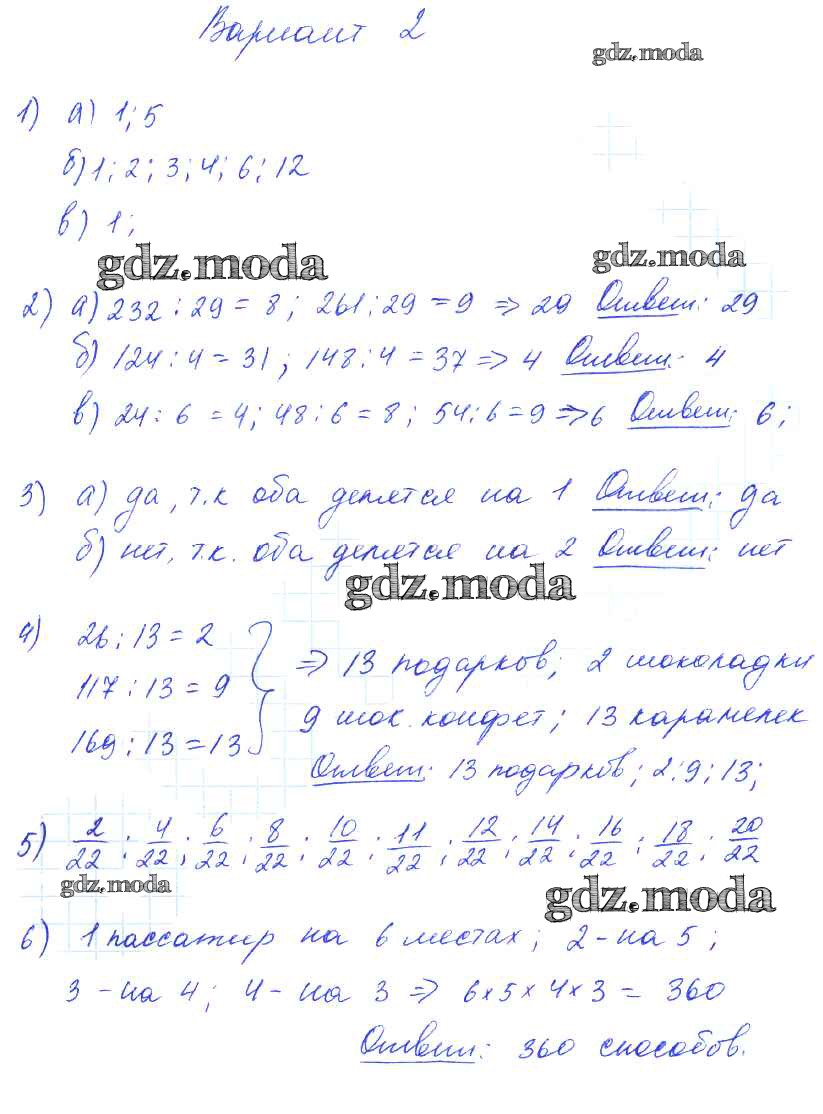 Вариант 2
gdz.moda
1) а) 1; 5
б) 1; 2; 3; 4; 6; 12
в) 1;
gdz.moda gdz.moda
2) а) 232 : 29 = 8; 261 : 29 = 9 => 29 Ответ: 29
б) 124 : 4 = 31; 148 : 4 = 37 => 4 Ответ: 4
в) 24 : 6 = 4; 48 : 6 = 8; 54 : 6 = 9 => 6 Ответ: 6;
3) а) да, т.к оба делятся на 1 Ответ: да
б) нет, т.к. оба делятся на 2 Ответ: нет
gdz.moda
4) 26 : 13 = 2
117 : 13 = 9
169 : 13 = 13
=> 13 подарков; 2 шоколадки
9 шок. конфет; 13 карамелек
Ответ: 13 подарков; 2; 9; 13;
5) 2/22; 4/22; 6/22; 8/22; 10/22; 11/22; 12/22; 14/22; 16/22; 18/22; 20/22
gdz.moda gdz.moda
6) 1 пассажир на 6 местах; 2 - на 5;
3 - на 4; 4 - на 3 => 6 × 5 × 4 × 3 = 360
Ответ: 360 способов.